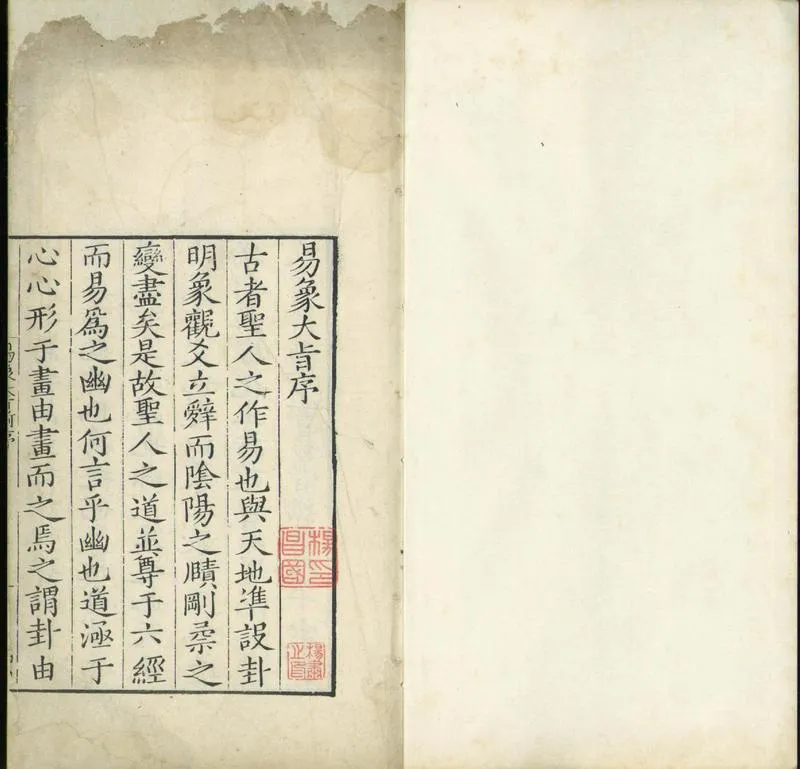 易象大旨序
古者聖人之作易也與天地準設卦
明象觀爻立辭而陰陽之賾剛柔之
變盡矣是故聖人之道並尊于六經
而易為之幽也何言乎幽也道極于
心心形于畫由畫而之焉之謂卦由
楊印昌國